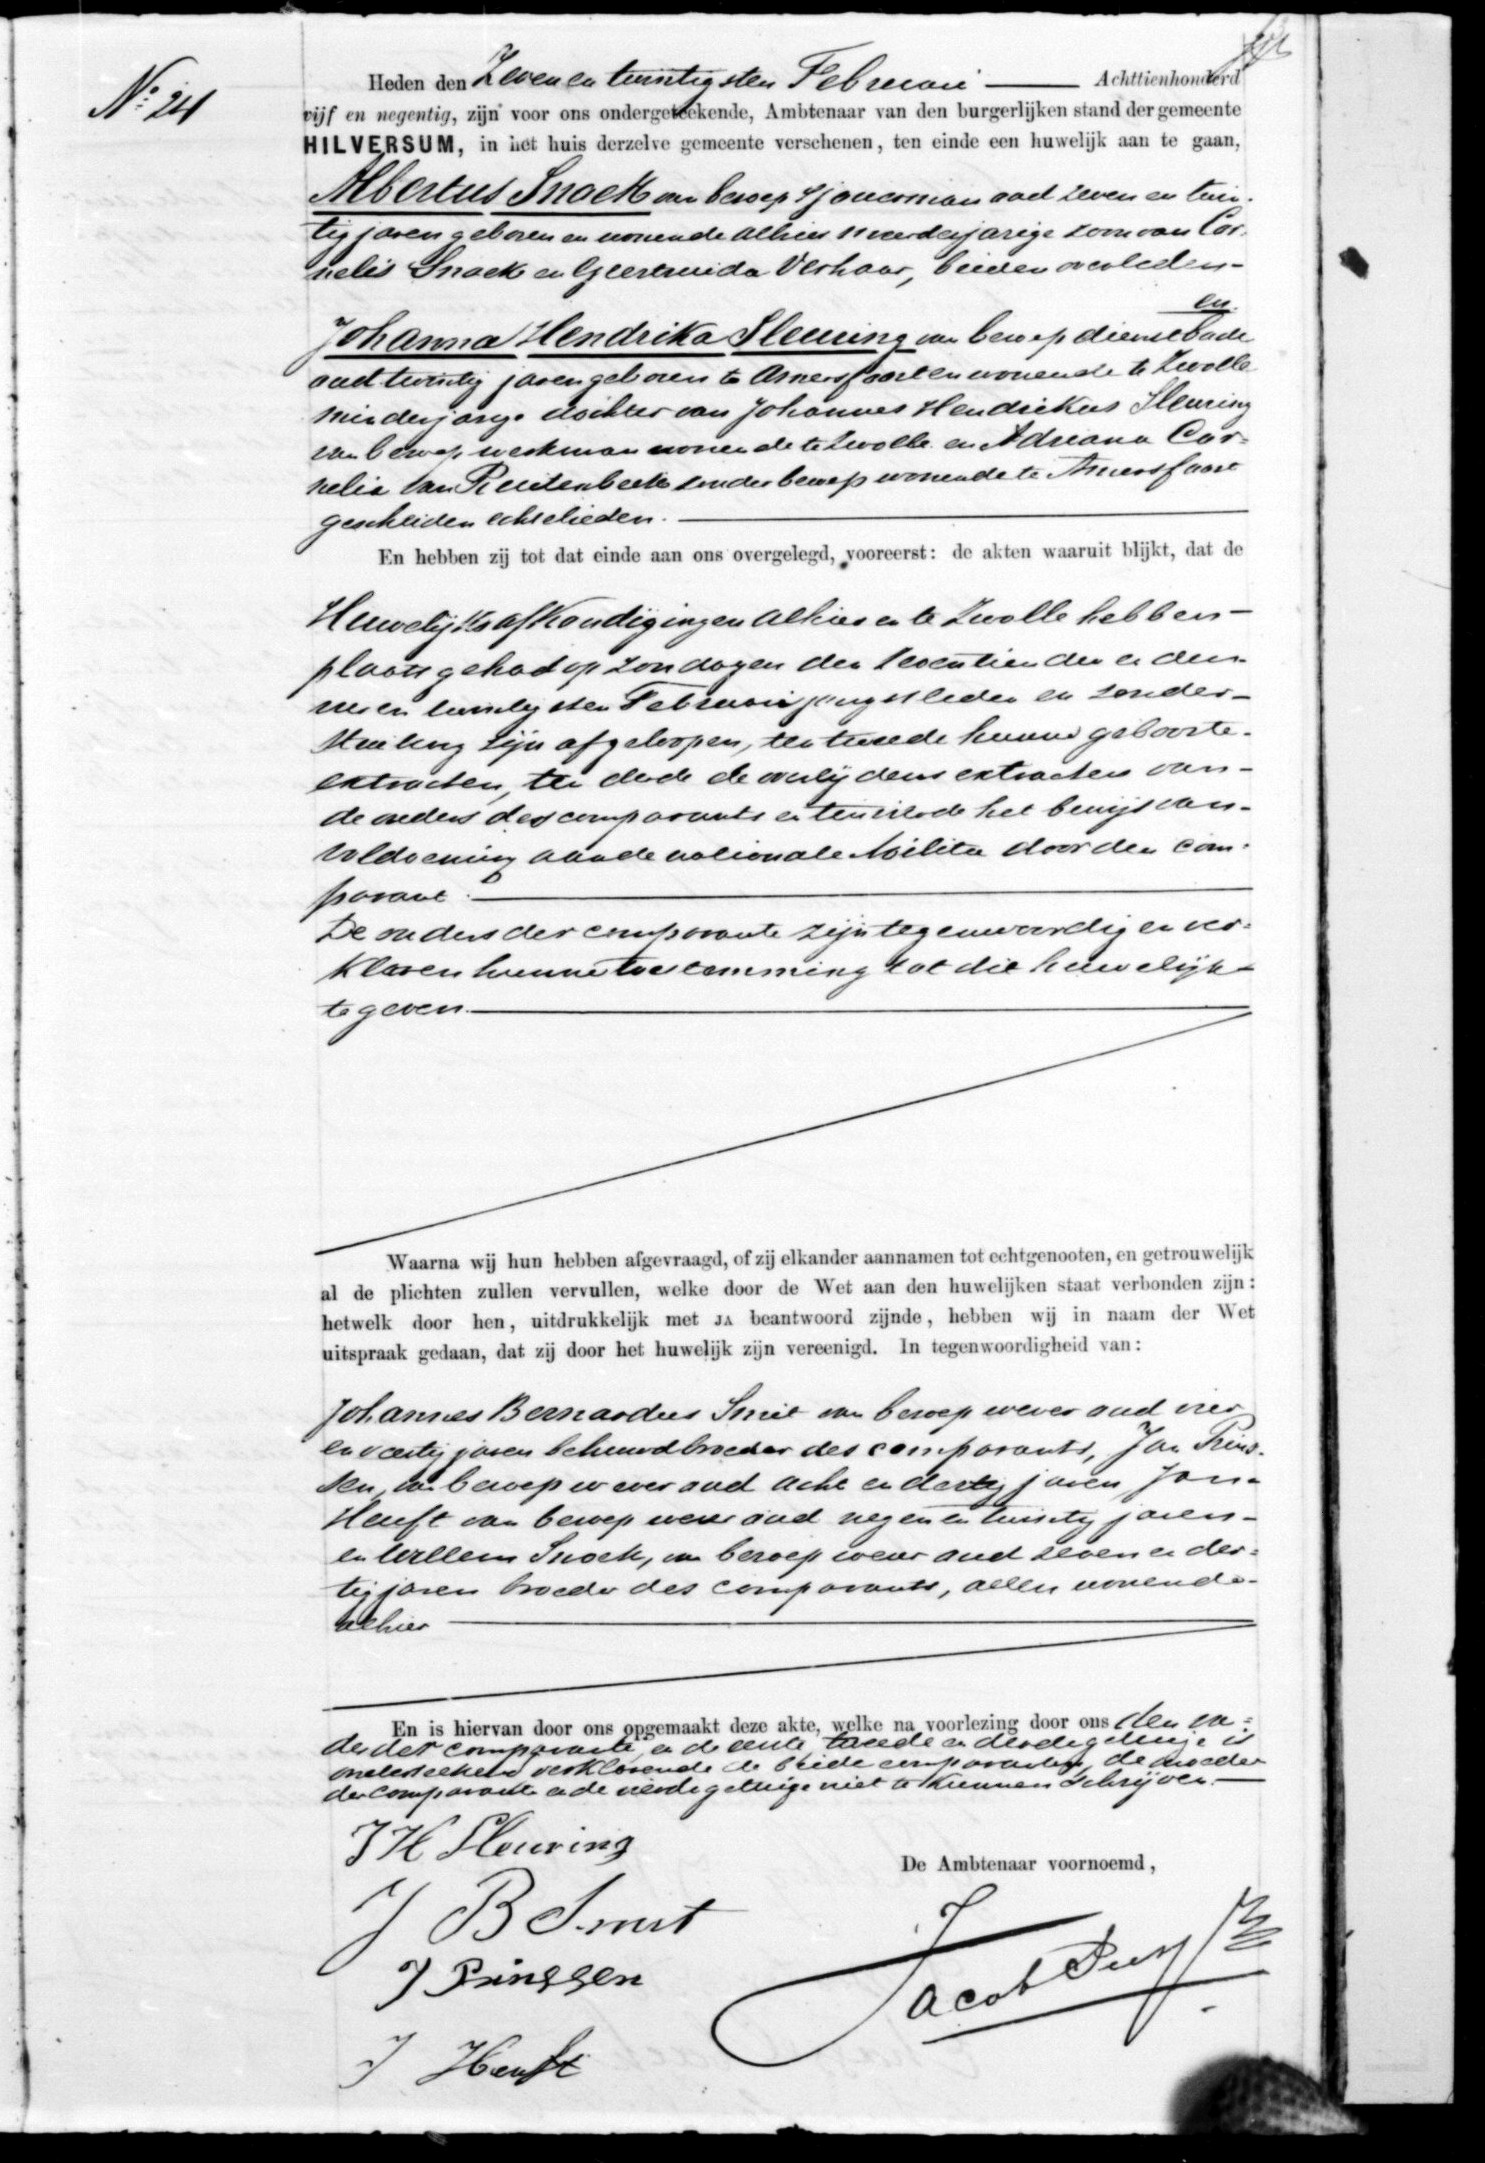 No. 24
Heden den Zeven en twintigsten Februari — Achttienhonderd
vijf en negentig, zijn voor ons ondergeteekende, Ambtenaar van den burgerlijken stand der gemeente
HILVERSUM, in het huis derzelve gemeente verschenen, ten einde een huwelijk aan te gaan,
Albertus Snoek van beroep sjouwerman oud zeven en twin-
tig jaren geboren en wonende alhier meerderjarige zoon van Cor-
nelis Snoek en Geertruida Verhaar, beiden overleden -
en
Johanna Hendrika Sleuring van beroep dienstbode
oud twintig jaren geboren te Amersfoort en wonende te Zwolle
minderjarige dochter van Johannes Hendrikus Sleuring
van beroep werkman wonende te Zwolle en Adriana Cor-
nelia van Ruitenbeek zonder beroep wonende te Amersfoort
gescheiden echtelieden. —
En hebben zij tot dat einde aan ons overgelegd, vooreerst: de akten waaruit blijkt, dat de
Huwelijksafkondigingen alhier en te Zwolle hebben -
plaats gehad op zondagen den zeventienden en den
vier en twintigsten Februari jongstleden en zonder -
stuiting zijn afgeloopen, ten tweede hunne geboorte-
extracten, ten derde de overlijdens extracten van -
de ouders des comparants en ten vierde het bewijs van -
voldoening aan de nationale Militie door den com-
parant. —
De ouders der comparante zijn tegenwoordig en ver-
klaren hunne toestemming tot dit huwelijk -
te geven. —
Waarna wij hun hebben afgevraagd, of zij elkander aannamen tot echtgenooten, en getrouwelijk
al de plichten zullen vervullen, welke door de Wet aan den huwelijken staat verbonden zijn:
hetwelk door hen, uitdrukkelijk met JA beantwoord zijnde, hebben wij in naam der Wet
uitspraak gedaan, dat zij door het huwelijk zijn vereenigd. In tegenwoordigheid van:
Johannes Bernardus Smit van beroep wever oud vier
en veertig jaren behuwdbroeder des comparants, Jan Prins-
sen, van beroep wever oud acht en dertig jaren Jan -
Heuft van beroep wever oud negen en twintig jaren -
en Willem Snoek, van beroep wever oud zeven en der-
tig jaren broeder des comparants, allen wonende -
alhier —
En is hiervan door ons opgemaakt deze akte, welke na voorlezing door ons den va-
der der comparante en de eerste tweede en derde getuige is
onderteekend verklarende de beide comparanten, de moeder
der comparante en de vierde getuige niet te kunnen schrijven. —
J H Sleuring
De Ambtenaar voornoemd,
J B Smit
J Prinssen
Jacob
J Heuft